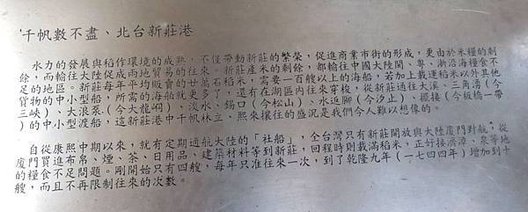 千帆數不盡、北台新莊港
水力的發展與稻作環境的成熟，不僅帶動新莊的繁榮，促進商業市街的形成，更由於米糧的剩
餘，而輸往大陸促成兩地貿易的往來。新莊產米的剩餘，都輸往中國大陸閩、粵、浙沿海糧食不
足的地區。新莊每年平均販會的廿萬石稻米，需要一百艘以上的海船，若加上載運稻米以外其他
貨物的中小型船，所需的海船就更多了，還有在湖區內往來穿梭，從新莊通往大溪、三角湧（今
三峽）、大浪泵（今大龍峒）、淡水、錫口（今松山）、水返腳（今汐止）、擺接（今板橋一帶
）的中小型渡船，這新莊港中千帆林立、熙來攘往的盛況是我們今人難以想像的。
自從康熙中期以來，就有定期通航大陸的「社船」，全台灣只有新莊開放與大陸廈門對航，從
廈門買進布帛、煙、茶、日用品、建築材料等到新莊，回程時則載滿稻米，正好接濟漳、泉等地
的糧食不足問題。剛開始只有四艘，每年只准往來一次，到了乾隆九年（一七四四年）增加到十
艘，而且不再限制往來的次數。